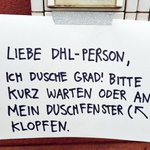 LIEBE DHL-PERSON,
ICH DUSCHE GRAD! BITTE
KURZ WARTEN ODER AN
MEIN DUSCHFENSTER (↖
KLOPFEN.